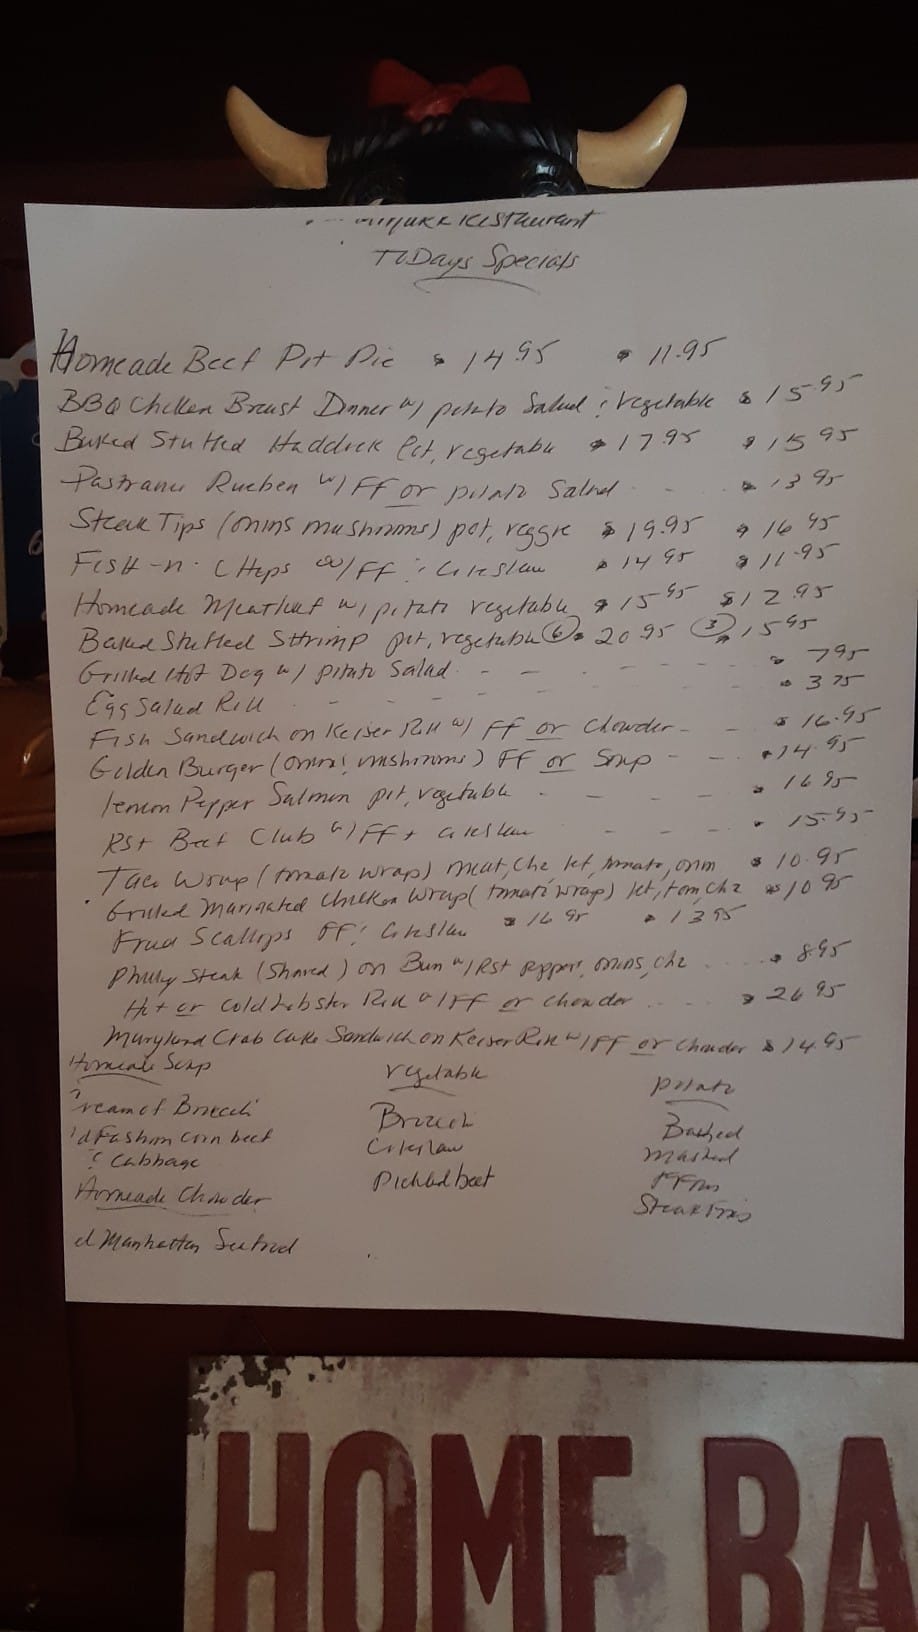 Restaurant
ToDays Specials
Homeade Beef Pot Pie $14.95 $11.95
BBQ Chicken Breast Dinner w/ potato Salad & vegetable $15.95
Baked Stuffed Haddock Pot, vegetable $17.95 $15.95
Pastrami Rueben w/ FF or potato Salad - - - $13.95
Steak Tips (onins mushrooms) pot, veggie $19.95 $16.95
FISH-n-CHips w/FF & Coleslaw $14.95 $11.95
Homeade Meatloaf w/ potato vegetable $15.95 $12.95
Baked Stuffed Shrimp pot, vegetable (6) $20.95 (3) $15.95
Grilled Hot Dog w/ potato Salad - - - $7.95
Egg Salad Roll - - - $3.75
Fish Sandwich on Keiser Roll w/ FF or Chowder - - $16.95
Golden Burger (onins & mushrooms) FF or Soup - - $14.95
lemon Pepper Salmon pot, vegetable - - - $16.95
Rst Beef Club w/ FF + Coleslaw - - - $15.95
Taco Wrap (tomato wrap) meat, Chz let, tomato, onin $10.95
Grilled Marinated Chicken Wrap (tomato wrap) let, tom, chz $10.95
Fried Scallops FF & Coleslaw $16.95 $13.95
Philly Steak (Shaved) on Bun w/ Rst peppers, onins, chz $8.95
Hot or Cold Lobster Roll w/ FF or chowder $26.95
Maryland Crab Cake Sandwich on Keiser Roll w/ FF or chowder $14.95
Homeade Soup vegetable potato
ream of Broccoli Broccoli Baked
ld Fashion corn beef Coleslaw mashed
& Cabbage Pickled beet FFries
Homeade Chowder Steak Fries
d Manhattan Seafood
HOME BA